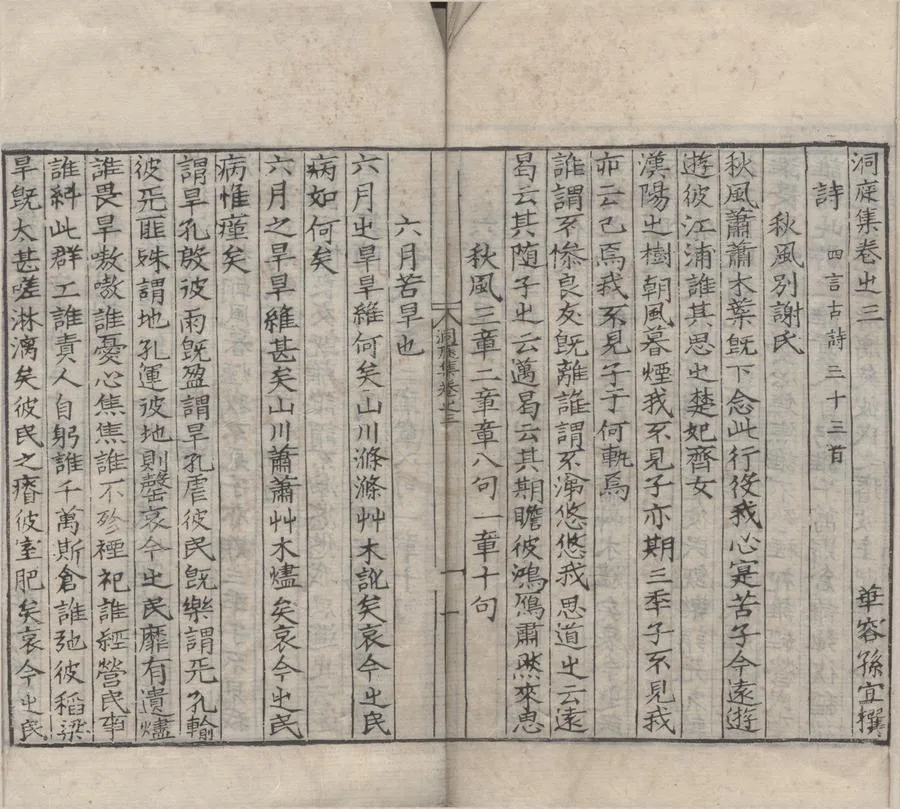 洞庭集卷之三
華容孫宜撰
詩 四言古詩三十三首
秋風別謝氏
秋風蕭蕭木葉旣下念此行役我心寔苦子今遠遊
遊彼江浦誰其思之楚妃齊女
漢陽之樹朝風暮煙我不見子亦期三秊子不見我
亦云已焉我不見子于何執焉
誰謂不慘良友旣離誰謂不涕悠悠我思道之云遠
曷云其随子之云邁曷云其期瞻彼鴻鴈肅然來思
秋風三章二章章八句一章十句
洞庭集卷之三
一
六月苦旱也
六月之旱旱維何矣山川滌滌艸木訛矣哀今之民
病如何矣
六月之旱旱維甚矣山川蕭蕭艸木燼矣哀今之民
病惟瘽矣
謂旱孔殷彼雨旣盈謂旱孔虐彼民旣樂謂兂孔輸
彼兂匪姝謂地孔運彼地則罄哀今之民靡有遺燼
誰畏旱嗷嗷誰憂心焦焦誰不殄禋祀誰經營民事
誰糾此群工誰責人自躬誰千萬斯倉誰弛彼稻梁
旱旣太甚嗟淋漓矣彼民之瘠彼室肥矣哀今之民